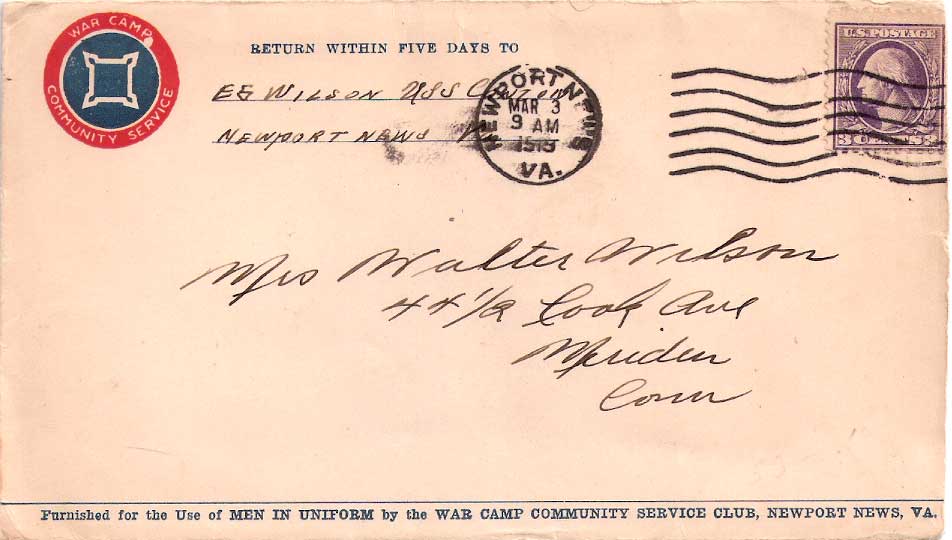 WAR CAMP
COMMUNITY SERVICE
RETURN WITHIN FIVE DAYS TO
EG WILSON USS Canton
NEWPORT NEWS Va
NEWPORT NEWS
MAR 3
9 AM
1919
VA.
U.S. POSTAGE
3 CENTS 3
Mrs Walter Wilson
44 1/2 Cook Ave
Meriden
Conn
Furnished for the Use of MEN IN UNIFORM by the WAR CAMP COMMUNITY SERVICE CLUB, NEWPORT NEWS, VA.